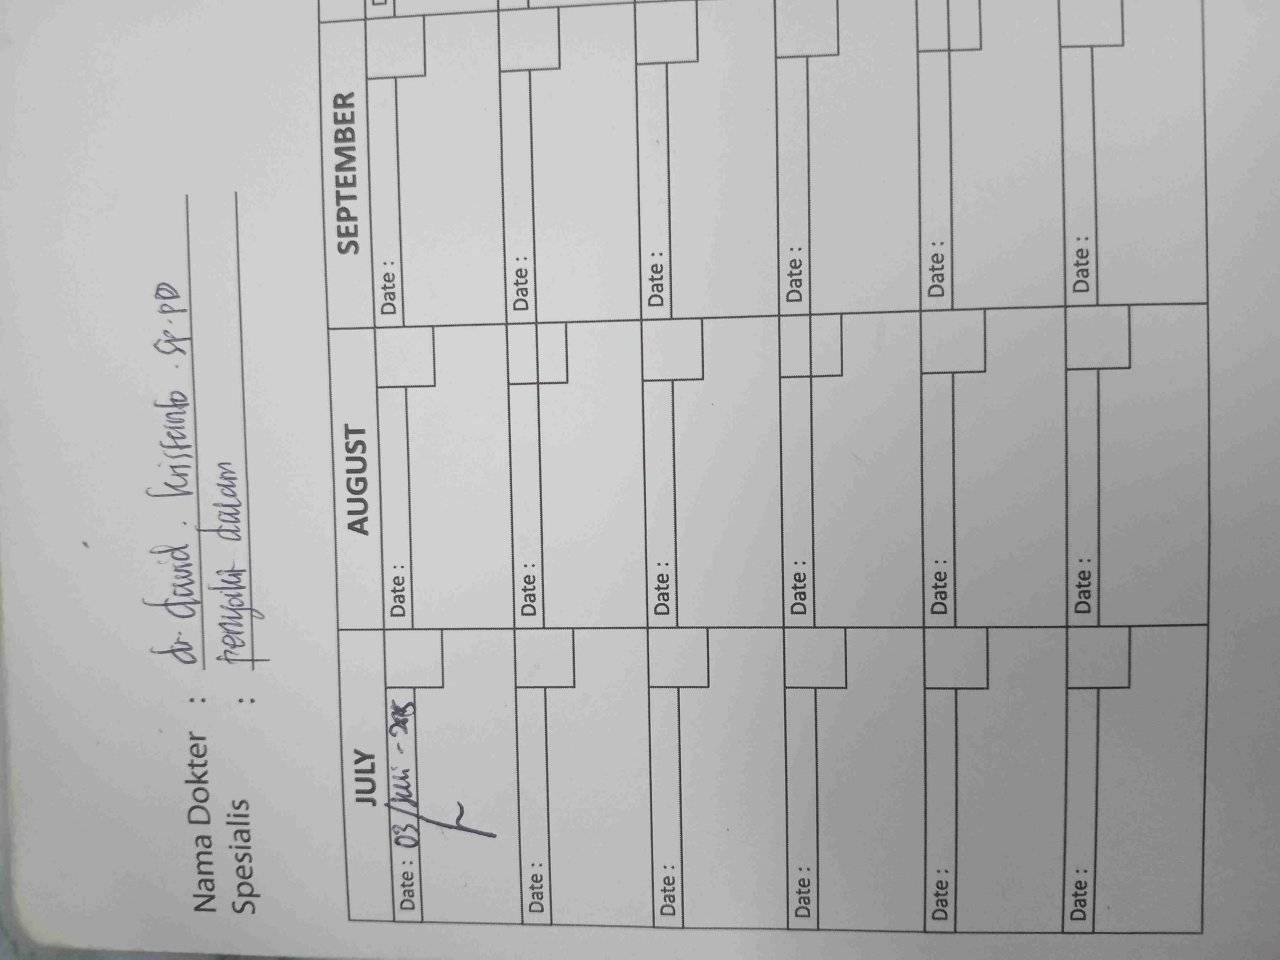 Nama Dokter : dr. david. kristanto. Sp.PD
Spesialis : penyakit dalam
JULY AUGUST SEPTEMBER
Date : 03/Juli - 2025 Date : Date : D
Date : Date : Date :
Date : Date : Date :
Date : Date : Date :
Date : Date : Date :
Date : Date : Date :